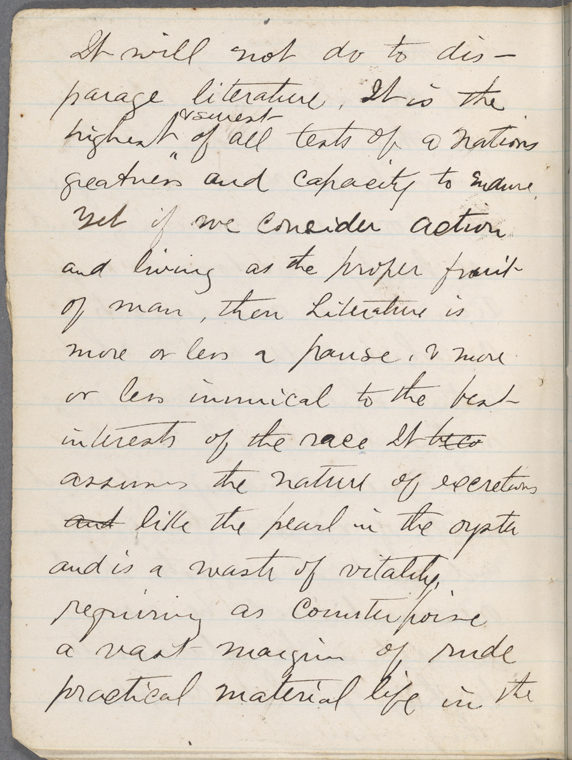 It will not do to dis-
parage literature. It is the
highest & surest of all tests of a nations
greatness and capacity to endure.
Yet if we consider action
and living as the proper fruit
of man, then Literature is
more or less a pause, & more
or less inimical to the best
interests of the race It beco
assumes the nature of excretions
and like the pearl in the oyster
and is a waste of vitality,
requiring as counterpoise
a vast margin of rude
practical material life in the